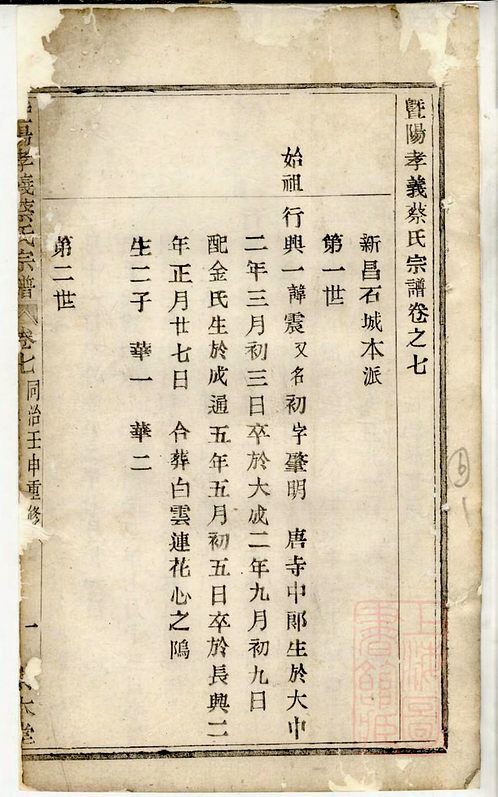 暨陽孝義蔡氏宗譜卷之七
新昌石城本派
第一世
始祖 行興一諱震又名初字肇明 唐寺中郎生於大中
二年三月初三日卒於大成二年九月初九日
配金氏生於成通五年五月初五日卒於長興二
年正月廿七日 合葬白雲連花心之隖
生二子 華一 華二
第二世
陽孝義蔡氏宗譜 卷七 同治壬申重修 一
上海圖書館藏